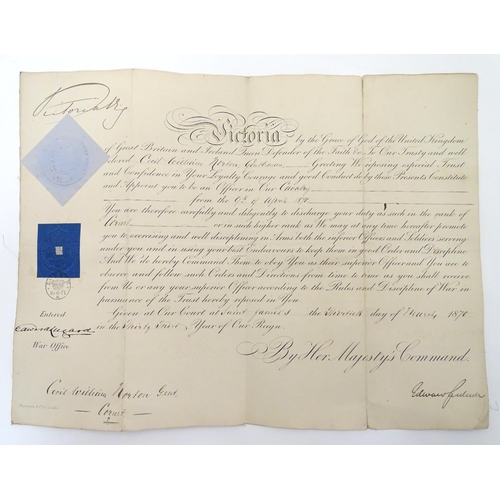 Victoria R
Victoria by the Grace of God of the United Kingdom
of Great Britain and Ireland Queen Defender of the Faith &c To Our Trusty and well
beloved Cecil William Norton Gentleman Greeting We reposing especial Trust
and Confidence in Your Loyalty Courage and good Conduct do by these Presents Constitute
and Appoint you to be an Officer in Our Cavalry
from the
You are therefore carefully and diligently to discharge your duty as such in the rank of
Cornet or in such higher rank as We may at any time hereafter promote
you to exercising and well disciplining in Arms both the inferior Officers and Soldiers serving
under you and in using your best Endeavours to keep them in good Order and Discipline
And We do hereby Command Them to obey You as their superior Officer and You to
observe and follow such Orders and Directions from time to time as you shall receive
from Us or any your superior Officer according to the Rules and Discipline of War in
pursuance of the Trust hereby reposed in You
Given at Our Court at Saint James's the day of 1870
in the Thirty Third Year of Our Reign
Entered
Edward Lugard
War Office
By Her Majesty's Command
Cecil William Norton Gent
Cornet
Edward